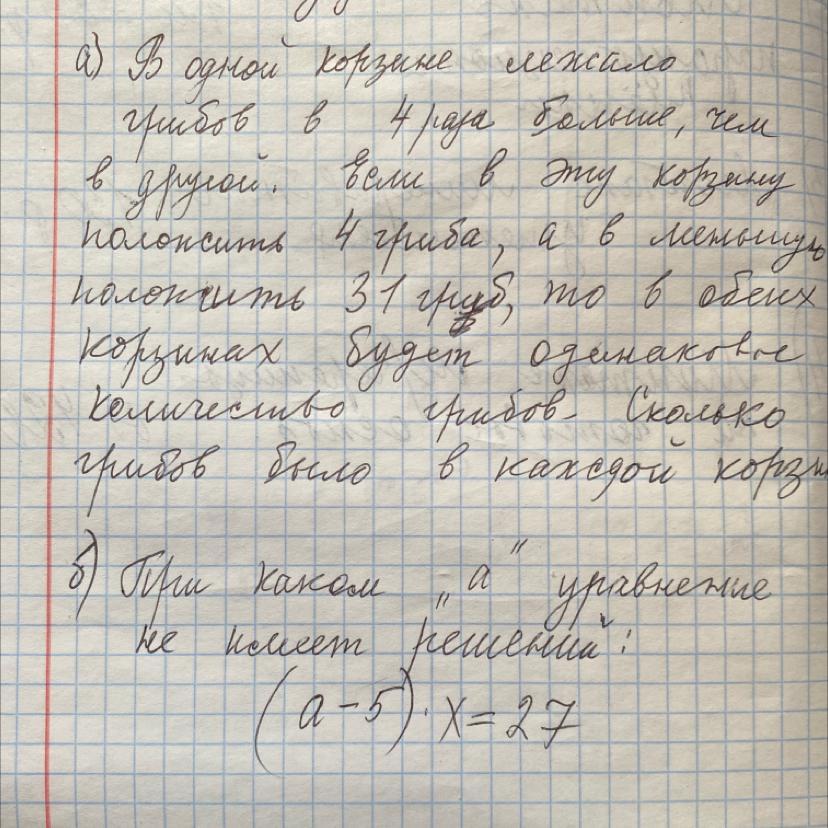 а) В одной корзине лежало
грибов в 4 раза больше, чем
в другой. Если в эту корзину
положить 4 гриба, а в меньшую
положить 31 гриб, то в обеих
корзинах будет одинаковое
количество грибов. Сколько
грибов было в каждой корзин
б) При каком „а" уравнение
не имеет решений:
(а-5)·х=27